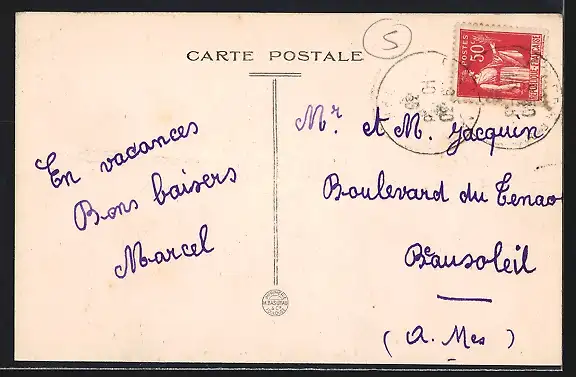 CARTE POSTALE
S
POSTES
50c
RÉPUBLIQUE FRANÇAISE
En vacances
Bons baisers
Marcel
Mr. et M. Jacquin
Boulevard du Tenao
Beausoleil
(A. Mes)